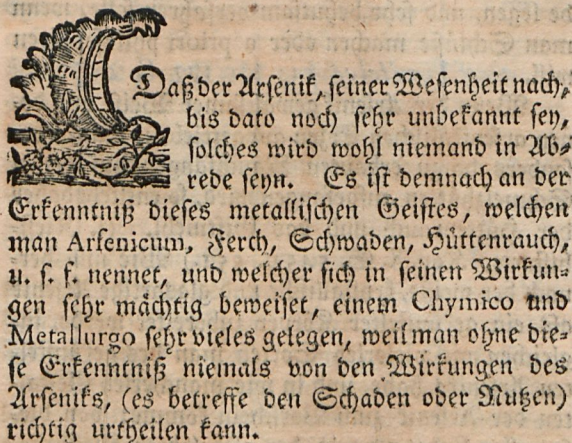 Daß der Arsenik, seiner Wesenheit nach,
bis dato noch sehr unbekannt sey,
solches wird wohl niemand in Ab-
rede seyn. Es ist demnach an der
Erkenntniß dieses metallischen Geistes, welchen
man Arsenicum, Ferch, Schwaden, Hüttenrauch,
u. s. f. nennet, und welcher sich in seinen Wirkun-
gen sehr mächtig beweiset, einem Chymico und
Metallurgo sehr vieles gelegen, weil man ohne die-
se Erkenntniß niemals von den Wirkungen des
Arseniks, (es betreffe den Schaden oder Nutzen)
richtig urtheilen kann.